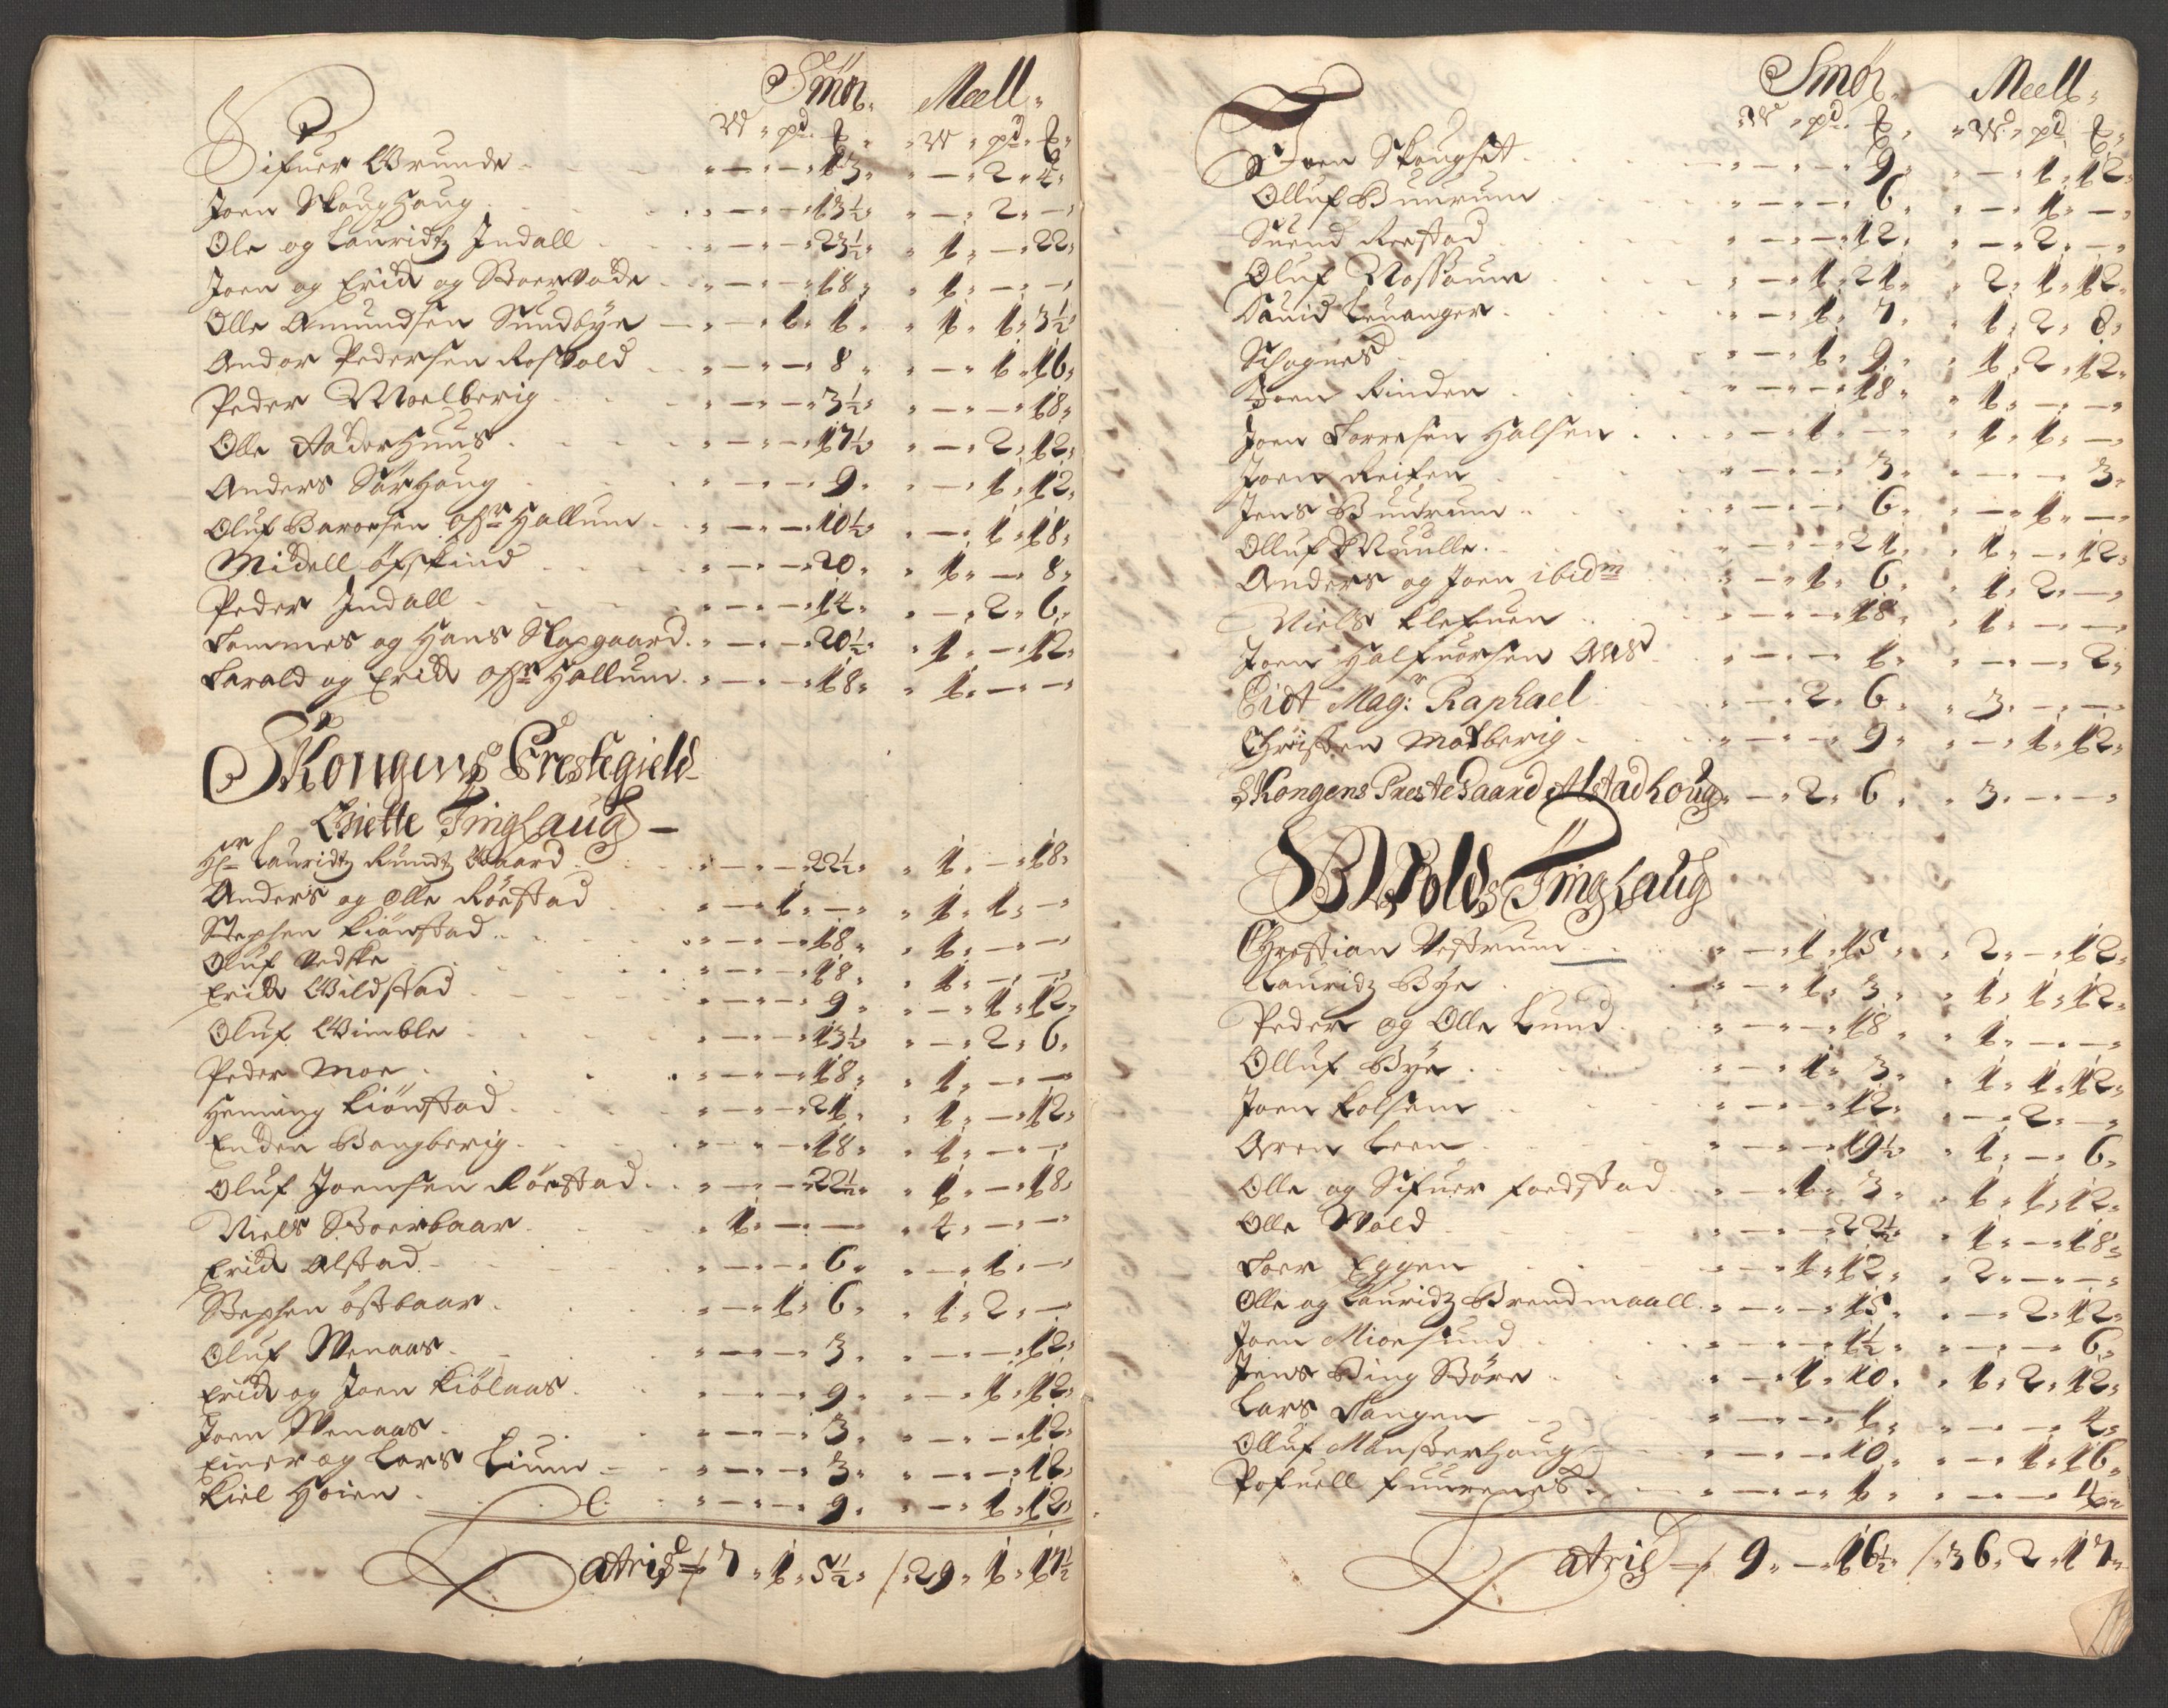 Smör. Meell.
W. pd. ℔. W. pd. ℔.
Sifuer Grunde - - - 13. - 2. 4.
Joen Skoughaug - - - 13½. - 2. -
Ole og Lauridtz Indall - - - 23½. 1. - 22.
Joen og Erich og Stoervade - - - 18. 1. - -
Olle Amundsen Sundbye - - 1. 1. 1. 1. 3½
Andor Pedersen Rosvold - - - 8. - 1. 16.
Peder Moelberig - - - 3½. - - 18.
Olle Aaderhuus - - - 17½. - 2. 12.
Anders Sörhoug - - - 9. - 1. 12.
Oluf Baroesen Hallum - - - 10½. - 1. 18.
Midell öfskind - - - 20. 1. - 8.
Peder Indall - - - 14. - 2. 6.
Tommes og Hans Slapgaard - - - 20½. 1. - 12.
Harald og Erich Hallum - - - 18. 1. - -
Skongens Prestegield
Giette Tinglaug -
Hr Lauridtz Rundtz Gaard - - - 22½. 1. - 18.
Anders og Olle Röestad - - 1. - 1. 1. -
Stephen Kiönstad - - - 18. 1. - -
Oluf Nedske - - - 18. 1. - -
Erich Wildstad - - - 9. - 1. 12.
Oluf Wimble - - - 13½. - 2. 6.
Peder Moe - - - 18. 1. - -
Heming Kiönstad - - - 21. 1. - 12.
Enden Bangberig - - - 18. 1. - -
Oluf Joensen Röestad - - - 22½. 1. - 18.
Niels Stoerbaar - 1. - - 4. - -
Erich Alstad - - - 6. - 1. -
Stephen östbaar - - 1. 6. 1. 2. -
Oluf Wenaas - - - 3. - - 12.
Erich og Joen Kiölaas - - - 9. - 1. 12.
Joen Wenaas - - - 3. - - 12.
Einer og Lars Lium - - - 3. - - 12.
Kiel Hoien - - - 9. - 1. 12.
Latris 7. 1. 5½. / 29. 1. 17½
Smör. Meell.
W. pd. ℔. W. pd. ℔.
Joen Skougset - - - 9. - 1. 12.
Olluf Buurum - - - 6. - 1. -
Suend Reestad - - - 12. - 2. -
Oluf Nossum - - 1. 21. 2. 1. 12.
Dauid Leuanger - - 1. 7. 1. 2. 8.
Schognes - - 1. 9. 1. 2. 12.
Joen Rinden - - - 18. 1. - -
Joen Torresen Halsen - - 1. - 1. 1. -
Joen Reiten - - - 3. - - 3.
Jens Buurum - - - 6. - 1. -
Olluf Muulle - - - 21. 1. - 12.
Anders og Joen ibidm - - 1. 6. 1. 2. -
Niels Klefuen - - - 18. 1. - -
Joen Halfuorsen Aas - - - 1. - - 2.
Eidt Magr: Raphael - - 2. 6. 3. - -
Christen Moxberig - - - 9. - 1. 12.
Skongens PresteGaard Alstadhoug - - 2. 6. 3. - -
Wolds Tinglaug
Chrestian Vestrum - - 1. 15. 2. - 12.
Lauridz Bye - - 1. 3. 1. 1. 12.
Peder og Olle Lund - - - 18. 1. - -
Olluf Bye - - 1. 3. 1. 1. 12.
Joen Kolsem - - - 12. - 2. -
Aren Leen - - - 19½. 1. - 6.
Olle og Sifuer Foedstad - - 1. 3. 1. 1. 12.
Olle Wold - - - 22½. 1. - 18.
Toer Eggen - - 1. 12. 2. - -
Olle og Lauridz Brendmaall - - - 15. - 2. 12.
Joen Mioesund - - - 1½. - - 6.
Jens Ding Störe - - 1. 10. 1. 2. 12.
Lars Tangen - - - 1. - - 4.
Olluf Mönsterhoug - - - 10. - 1. 16.
Pofuell Fuurenes - - - 1. - - 4.
Latris 9. - 16½ / 36. 2. 17.